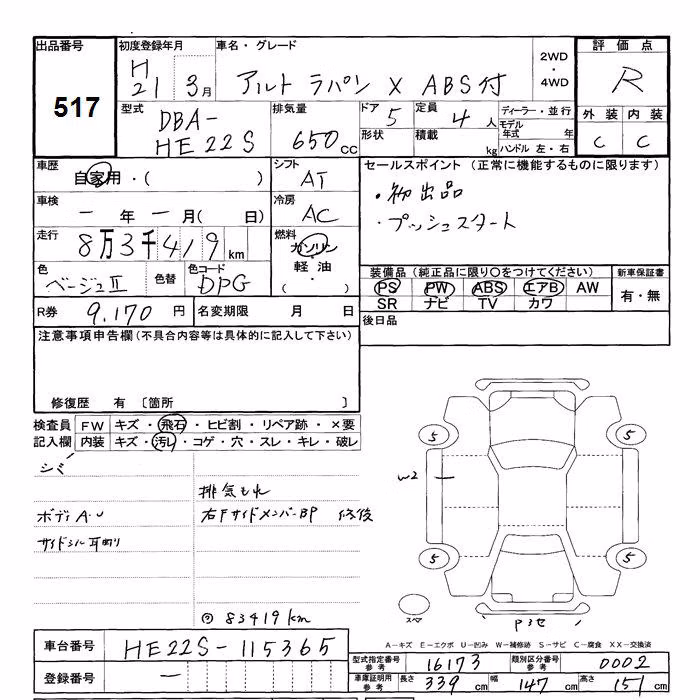 出品番号 初度登録年月 車名・グレード 2WD・4WD 評価点
517 H21 3月 アルト ラパン X ABS付 R
型式 排気量 ドア 定員 ディーラー・並行 外装 内装
DBA-HE22S 650cc 5 4人 モデル年式 年 C C
形状 積載 kg ハンドル 左・右
車歴 シフト セールスポイント (正常に機能するものに限ります)
自家用・( ) AT ・初出品
車検 冷房 ・プッシュスタート
一 年 一 月( 日) AC
走行 燃料
8万3千419km ガソリン・軽油・( )
色 色替 色コード 装備品(純正品に限り〇をつけてください) 新車保証書
ベージュII DPG PS PW ABS エアB AW 有・無
SR ナビ TV カワ
R券 9,170円 名変期限 月 日 後日品
注意事項申告欄(不具合内容等は具体的に記入して下さい)
修復歴 有 〔箇所 〕
検査員 FW キズ・飛石・ヒビ割・リペア跡・×要
記入欄 内装 キズ・汚レ・コゲ・穴・スレ・キレ・破レ
シミ
排気もれ
ボディ A・U 右Fサイドメンバー BP 修復
5 5
W2
5 5
83419km
スペア
A-キズ E-エクボ U-凹み W-補修跡 S-サビ C-腐食 XX-交換済
車台番号 HE22S-115365
型式指定番号 参考 16173 類別区分番号 参考 0002
登録番号 一
車庫証明用 参考 長さ 339cm 幅 147cm 高さ 151cm